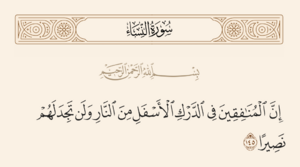 سُورَةُ النِّسَاءِ
بِسْمِ اللَّهِ الرَّحْمَٰنِ الرَّحِيمِ
إِنَّ الْمُنَافِقِينَ فِي الدَّرْكِ الْأَسْفَلِ مِنَ النَّارِ وَلَن تَجِدَ لَهُمْ
نَصِيرًا ١٤٥